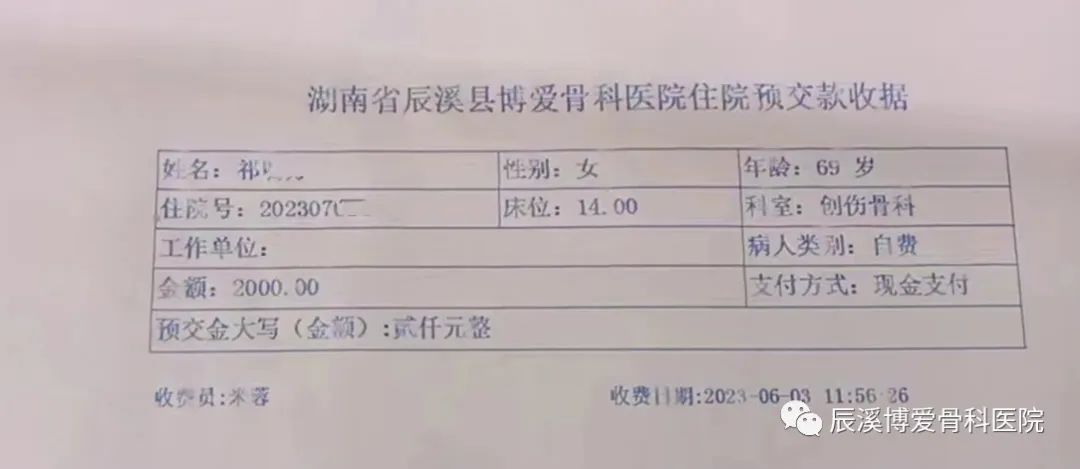 湖南省辰溪县博爱骨科医院住院预交款收据
姓名：祁 性别：女 年龄：69 岁
住院号：202307 床位：14.00 科室：创伤骨科
工作单位： 病人类别：自费
金额：2000.00 支付方式：现金支付
预交金大写（金额）:贰仟元整
收费员:米蓉 收费日期:2023-06-03 11:56:26
辰溪博爱骨科医院